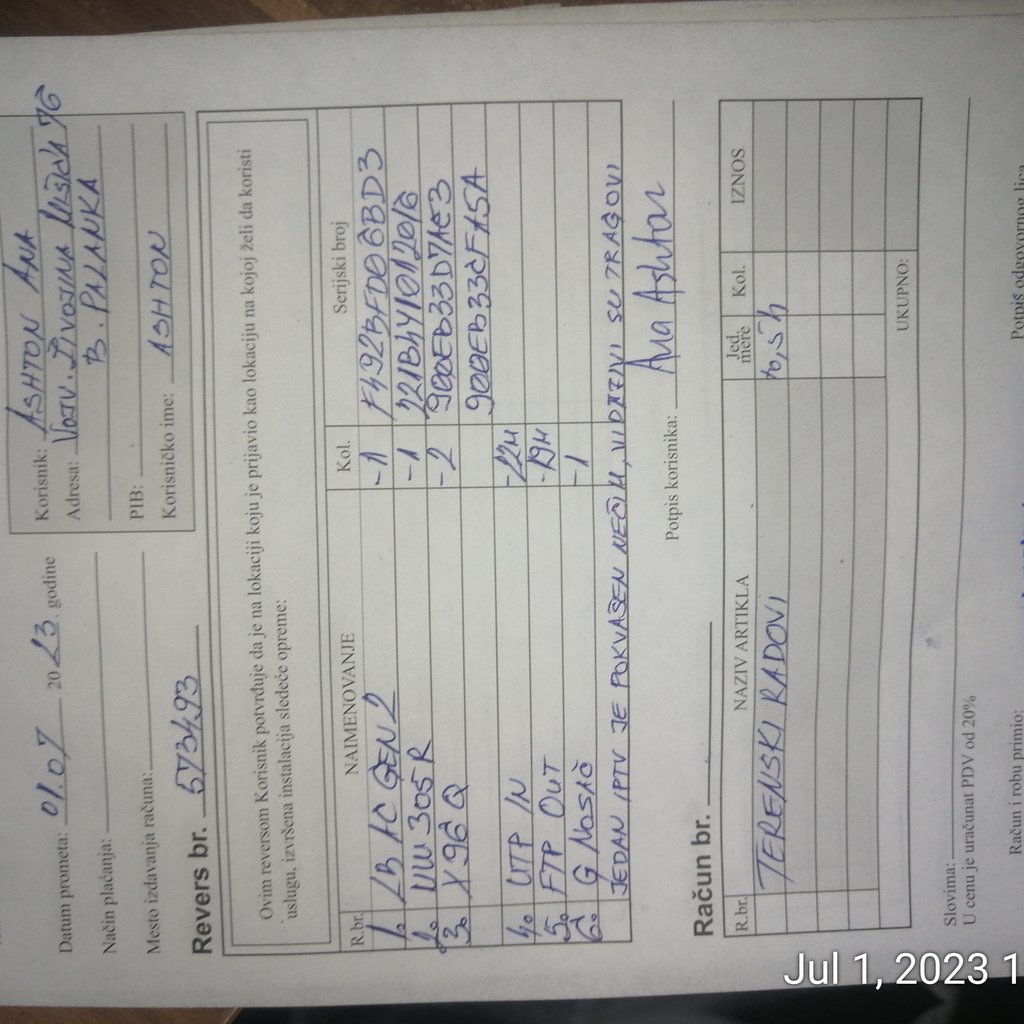 Datum prometa: 01.07 2023. godine
Način plaćanja:
Mesto izdavanja računa:
Korisnik: ASHTON ANA
Adresa: VOJV. ŽIVOJINA MIŠIĆA 76
B. PALANKA
PIB:
Korisničko ime: ASHTON
Revers br. 573493
Ovim reversom Korisnik potvrđuje da je na lokaciji koju je prijavio kao lokaciju na kojoj želi da koristi
uslugu, izvršena instalacija sledeće opreme:
R.br. NAIMENOVANJE Kol. Serijski broj
1. LB AC GEN2 -1 F492BFD06BD3
2. WW305R -1 221B441012016
3. X96Q -2 900EB33D7AE3
900EB33CFA5A
4. UTP IN -22M
5. FTP OUT -19M
6. G NOSAČ -1
JEDAN IPTV JE POKVAŠEN NEČIM, VIDLJIVI SU TRAGOVI
Potpis korisnika: Ana Ashton
Račun br.
R.br. NAZIV ARTIKLA Jed. mere Kol. IZNOS
TERENSKI RADOVI 0,5h
UKUPNO:
Slovima:
U cenu je uračunat PDV od 20%
Račun i robu primio:
Potpis odgovornog lica
Jul 1, 2023 1